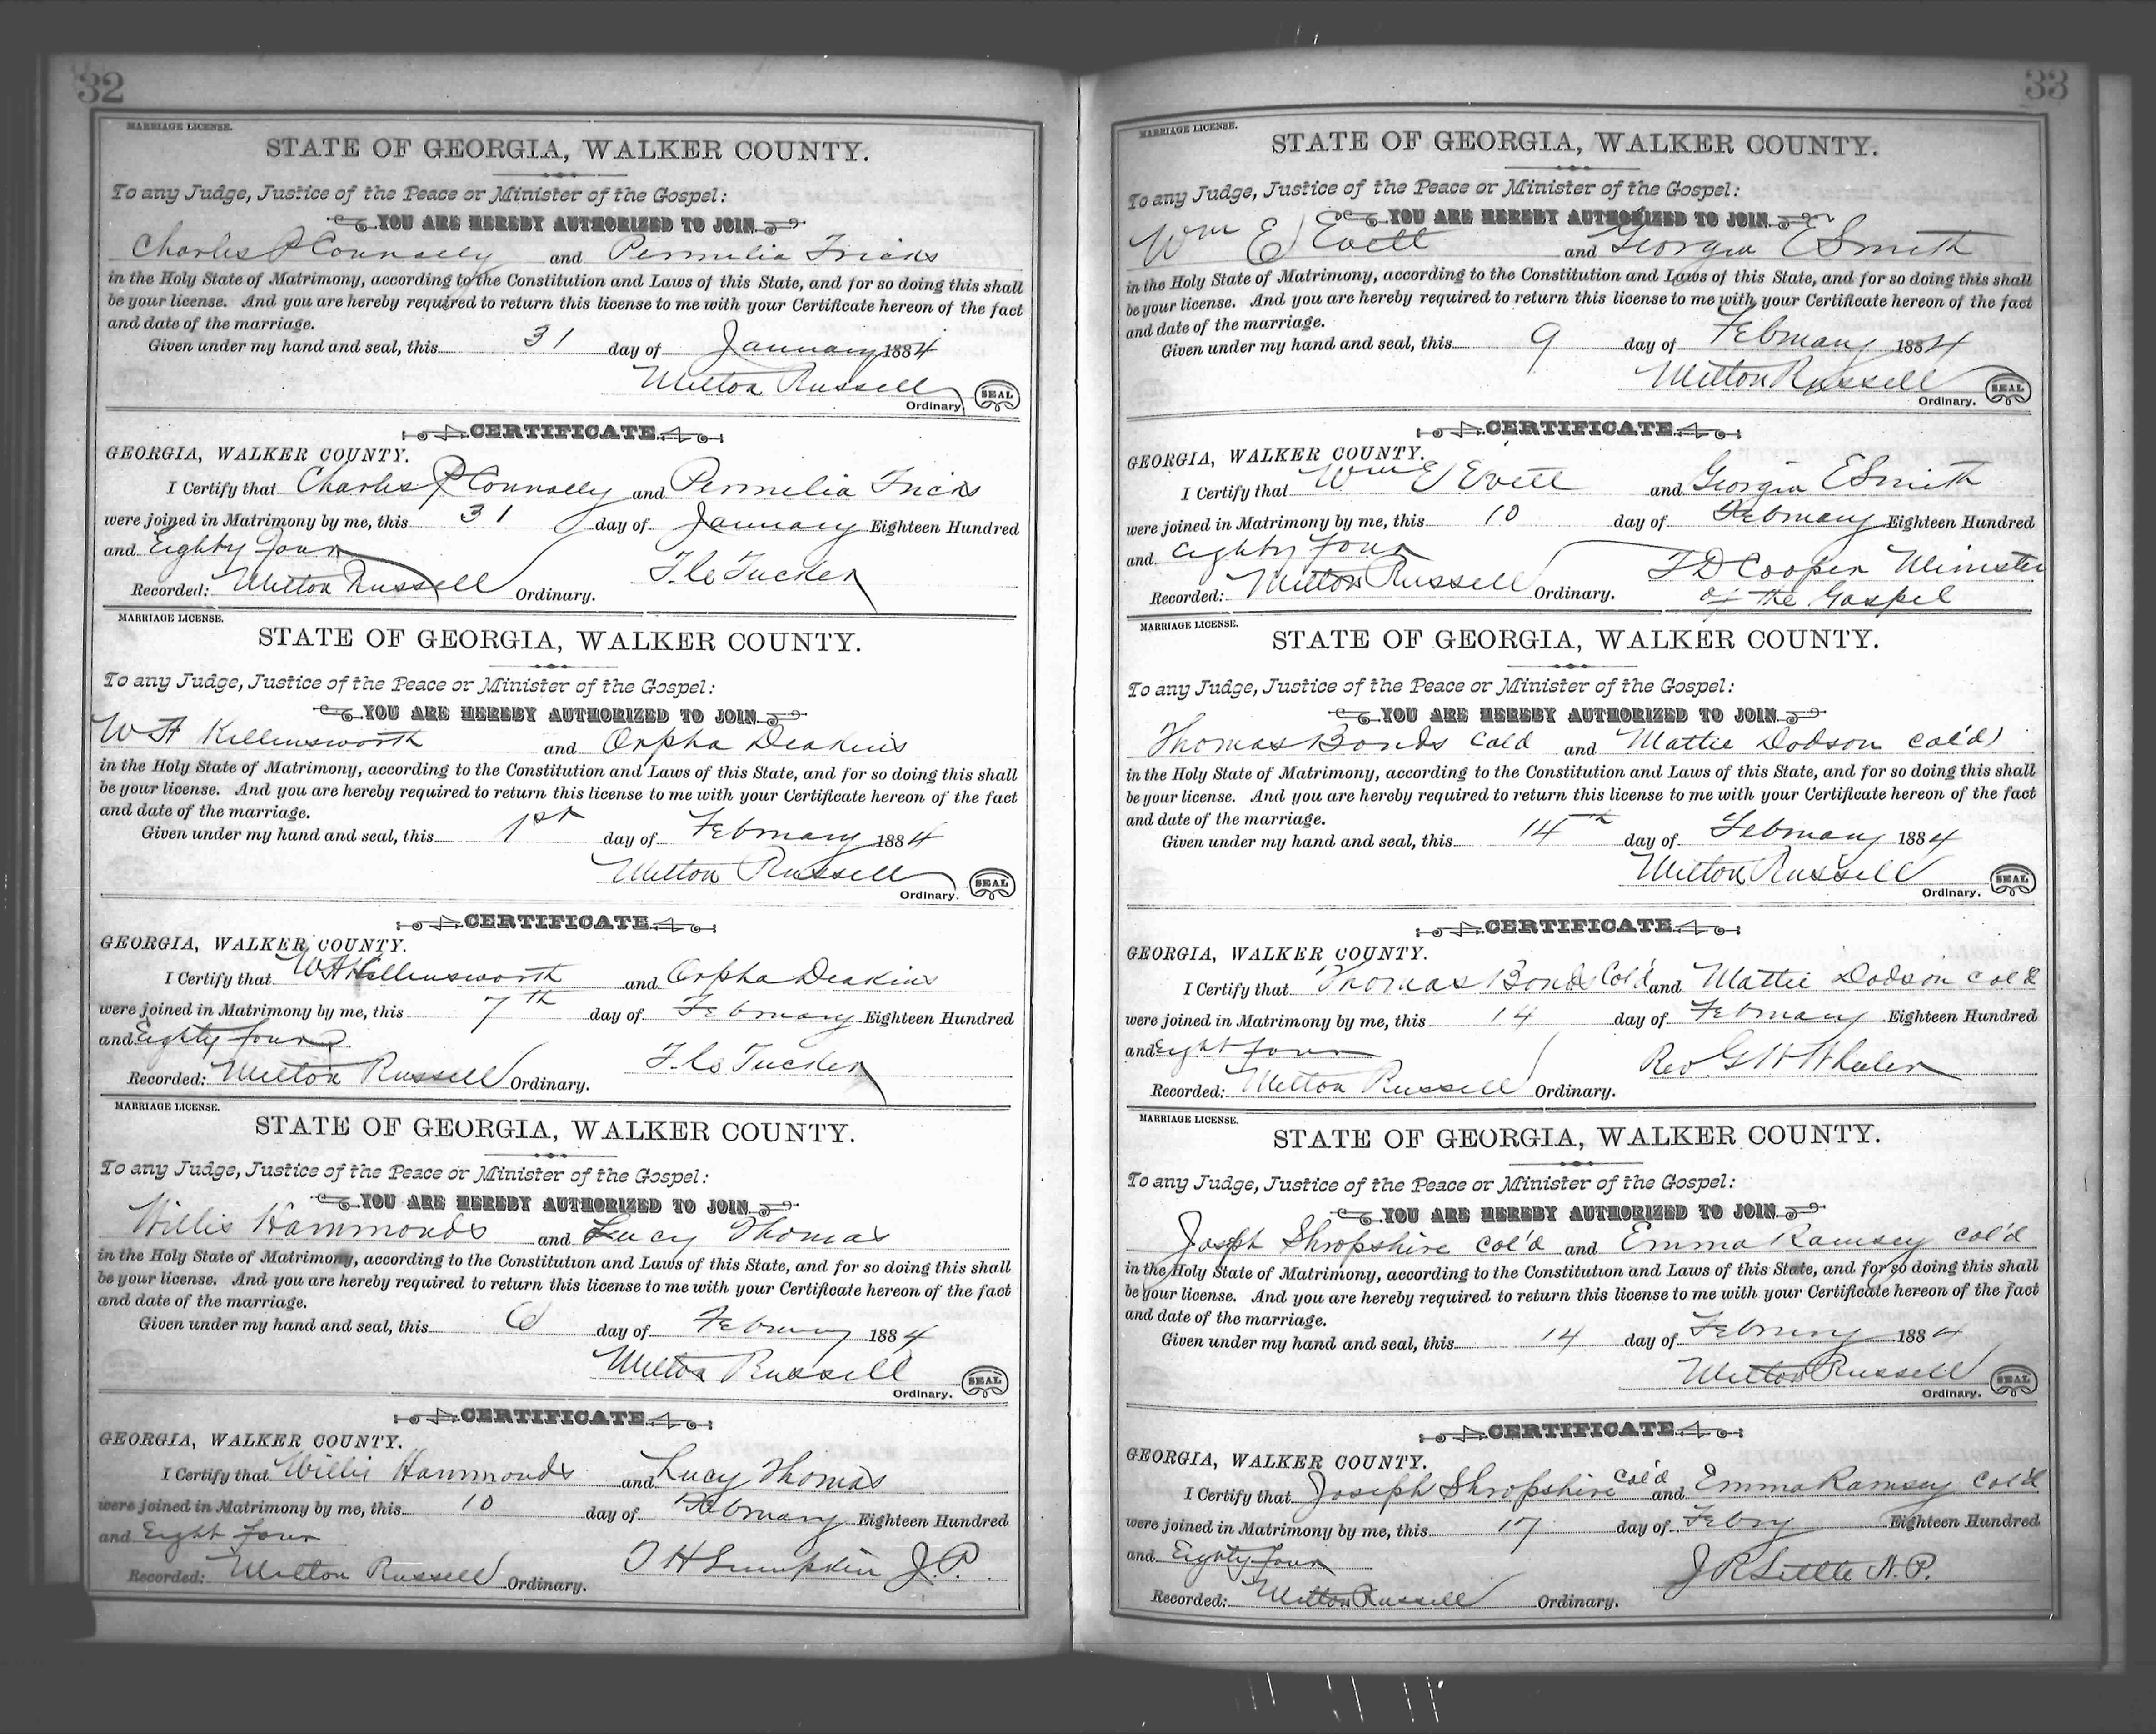 32
MARRIAGE LICENSE.
STATE OF GEORGIA, WALKER COUNTY.
To any Judge, Justice of the Peace or Minister of the Gospel:
YOU ARE HEREBY AUTHORIZED TO JOIN
Charles P Connally and Permelia Fricks
in the Holy State of Matrimony, according to the Constitution and Laws of this State, and for so doing this shall
be your license. And you are hereby required to return this license to me with your Certificate hereon of the fact
and date of the marriage.
Given under my hand and seal, this 31 day of January 1884
Milton Russell
Ordinary. SEAL
CERTIFICATE
GEORGIA, WALKER COUNTY.
I Certify that Charles P Connally and Permelia Fricks
were joined in Matrimony by me, this 31 day of January Eighteen Hundred
and Eighty Four
Recorded: Milton Russell Ordinary. Tucker
MARRIAGE LICENSE.
STATE OF GEORGIA, WALKER COUNTY.
To any Judge, Justice of the Peace or Minister of the Gospel:
YOU ARE HEREBY AUTHORIZED TO JOIN
W H Killensworth and Orpha Deakins
in the Holy State of Matrimony, according to the Constitution and Laws of this State, and for so doing this shall
be your license. And you are hereby required to return this license to me with your Certificate hereon of the fact
and date of the marriage.
Given under my hand and seal, this 1st day of February 1884
Milton Russell
Ordinary. SEAL
CERTIFICATE
GEORGIA, WALKER COUNTY.
I Certify that W H Killensworth and Orpha Deakins
were joined in Matrimony by me, this 7th day of February Eighteen Hundred
and Eighty Four
Recorded: Milton Russell Ordinary. Tucker
MARRIAGE LICENSE.
STATE OF GEORGIA, WALKER COUNTY.
To any Judge, Justice of the Peace or Minister of the Gospel:
YOU ARE HEREBY AUTHORIZED TO JOIN
Willis Hammonds and Lucy Thomas
in the Holy State of Matrimony, according to the Constitution and Laws of this State, and for so doing this shall
be your license. And you are hereby required to return this license to me with your Certificate hereon of the fact
and date of the marriage.
Given under my hand and seal, this 6 day of February 1884
Milton Russell
Ordinary. SEAL
CERTIFICATE
GEORGIA, WALKER COUNTY.
I Certify that Willis Hammonds and Lucy Thomas
were joined in Matrimony by me, this 10 day of February Eighteen Hundred
and Eight Four
Recorded: Milton Russell Ordinary. H Lumpkin J.P.
33
MARRIAGE LICENSE.
STATE OF GEORGIA, WALKER COUNTY.
To any Judge, Justice of the Peace or Minister of the Gospel:
YOU ARE HEREBY AUTHORIZED TO JOIN
Wm E Evett and Georgia E Smith
in the Holy State of Matrimony, according to the Constitution and Laws of this State, and for so doing this shall
be your license. And you are hereby required to return this license to me with your Certificate hereon of the fact
and date of the marriage.
Given under my hand and seal, this 9 day of February 1884
Milton Russell
Ordinary. SEAL
CERTIFICATE
GEORGIA, WALKER COUNTY.
I Certify that Wm E Evett and Georgia E Smith
were joined in Matrimony by me, this 10 day of February Eighteen Hundred
and Eighty Four
T D Cooper Minister
Recorded: Milton Russell Ordinary. of the Gospel
MARRIAGE LICENSE.
STATE OF GEORGIA, WALKER COUNTY.
To any Judge, Justice of the Peace or Minister of the Gospel:
YOU ARE HEREBY AUTHORIZED TO JOIN
Thomas Bonds Cold and Mattie Dodson col'd
in the Holy State of Matrimony, according to the Constitution and Laws of this State, and for so doing this shall
be your license. And you are hereby required to return this license to me with your Certificate hereon of the fact
and date of the marriage.
Given under my hand and seal, this 14th day of February 1884
Milton Russell
Ordinary. SEAL
CERTIFICATE
GEORGIA, WALKER COUNTY.
I Certify that Thomas Bonds Col'd and Mattie Dodson col'd
were joined in Matrimony by me, this 14 day of February Eighteen Hundred
and Eight four
Rev. G H Wheeler
Recorded: Milton Russell Ordinary.
MARRIAGE LICENSE.
STATE OF GEORGIA, WALKER COUNTY.
To any Judge, Justice of the Peace or Minister of the Gospel:
YOU ARE HEREBY AUTHORIZED TO JOIN
Joseph Shropshire col'd and Emma Ramsey col'd
in the Holy State of Matrimony, according to the Constitution and Laws of this State, and for so doing this shall
be your license. And you are hereby required to return this license to me with your Certificate hereon of the fact
and date of the marriage.
Given under my hand and seal, this 14 day of February 1884
Milton Russell
Ordinary. SEAL
CERTIFICATE
GEORGIA, WALKER COUNTY.
I Certify that Joseph Shropshire col'd and Emma Ramsey col'd
were joined in Matrimony by me, this 17 day of Febry Eighteen Hundred
and Eighty four
J R Little N.P.
Recorded: Milton Russell Ordinary.